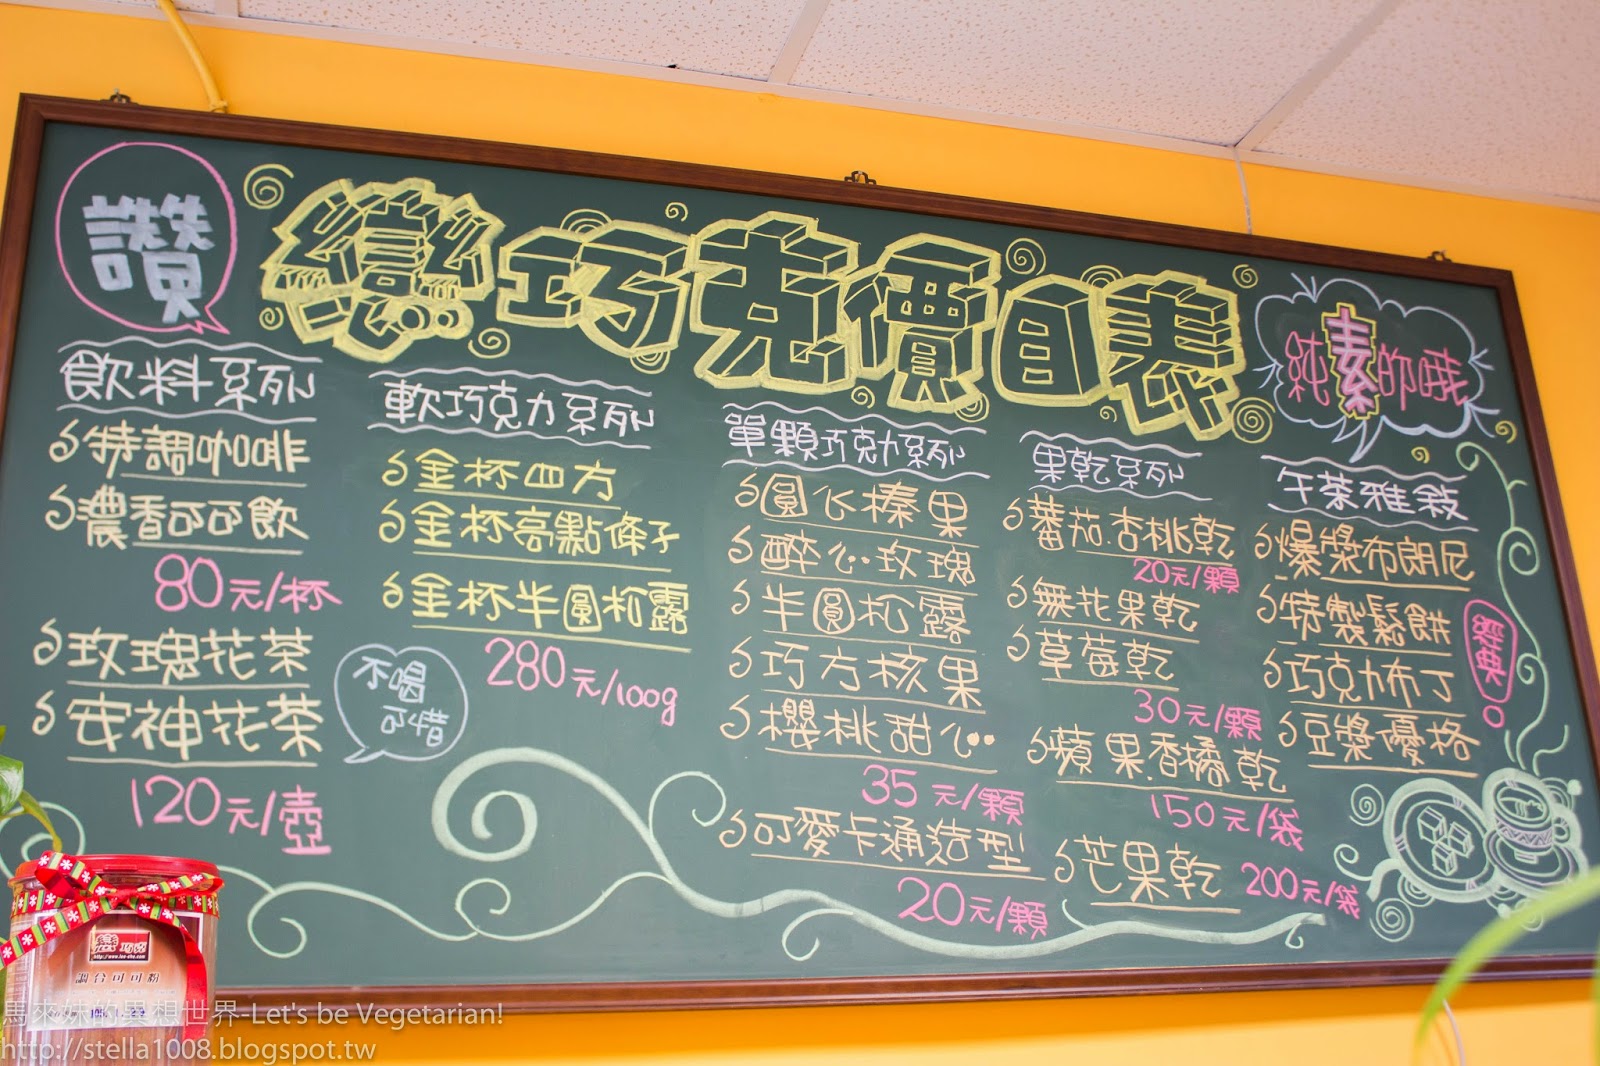 讚
戀巧克價目表
純素的哦
飲料系列
特調咖啡
濃香可可飲
80元/杯
玫瑰花茶
安神花茶
120元/壺
不喝
可惜
軟巧克力系列
金杯四方
金杯亮點條子
金杯半圓松露
280元/100g
單顆巧克力系列
圓心榛果
醉心玫瑰
半圓松露
巧方核果
櫻桃甜心
35元/顆
可愛卡通造型
20元/顆
果乾系列
蕃茄.杏桃乾
20元/顆
無花果乾
草莓乾
30元/顆
蘋果.香橘乾
150元/袋
芒果乾
200元/袋
午茶雅敍
爆漿布朗尼
特製鬆餅
巧克力布丁
豆漿優格
經典!
戀巧克
調合可可粉
馬來妹的異想世界-Let's be Vegetarian!
http://stella1008.blogspot.tw